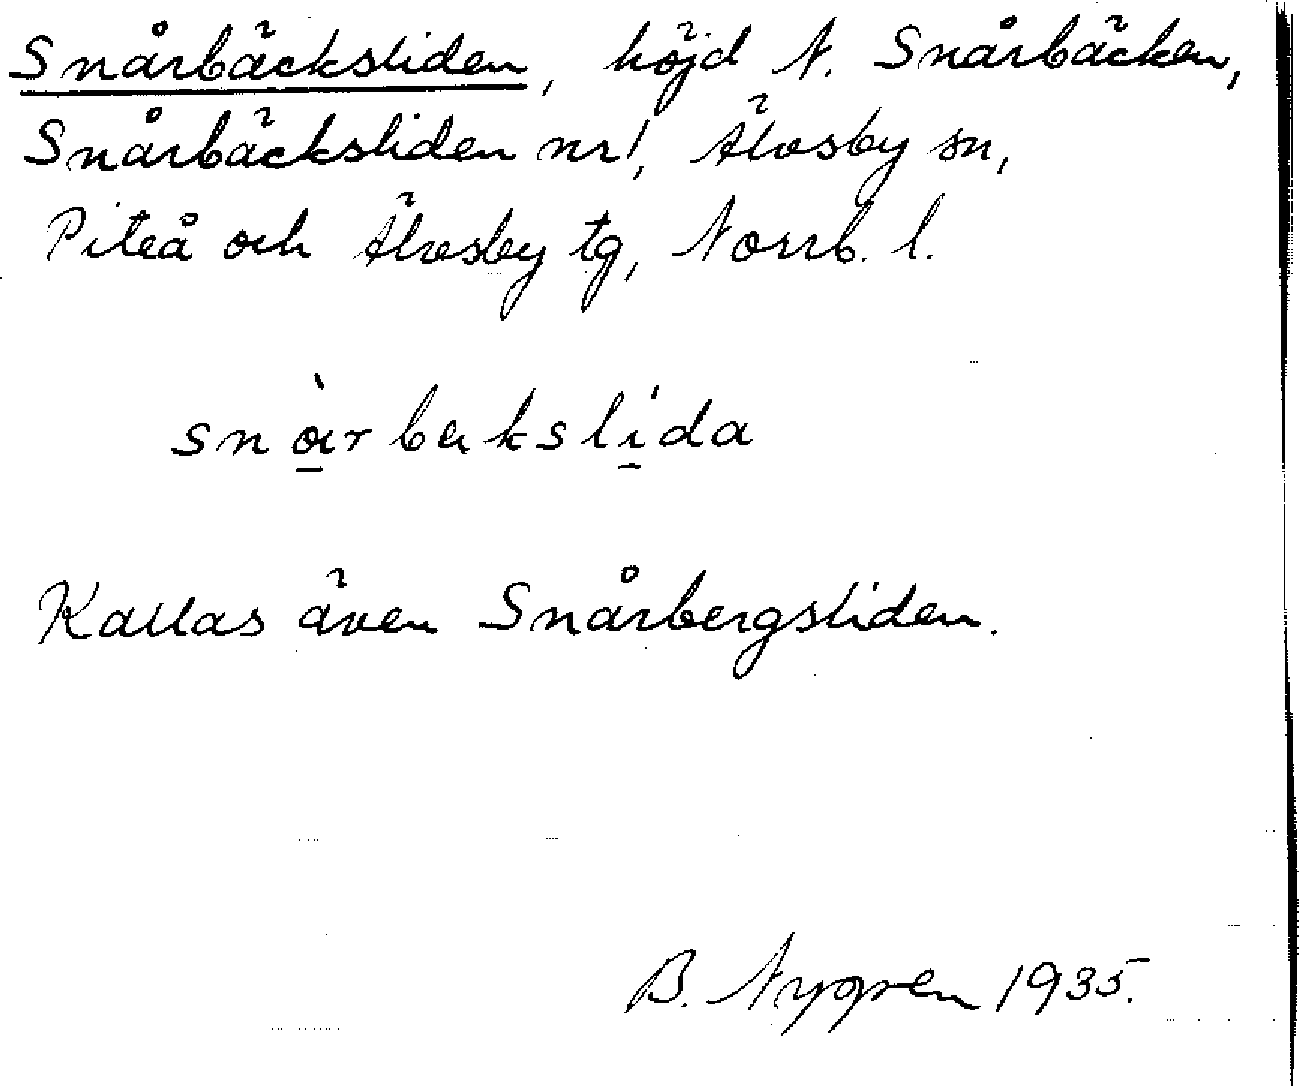 Snårbäcksliden, höjd N. Snårbäcken,
Snårbäcksliden nr 1, Älvsby sn,
Piteå och Älvsby tg, Norrb. l.
Kallas även Snårbergsliden.
B. Nygren 1935.